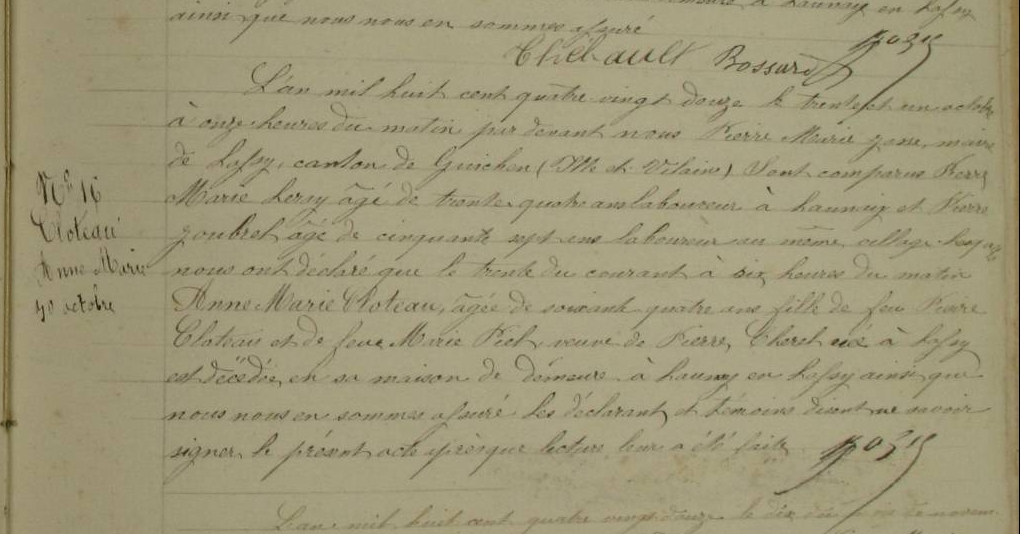 à Launay en Lassy
ainsi que nous nous en sommes assuré
Thébault Bossard
L'an mil huit cent quatre vingt douze le trente et un octobre
à onze heures du matin par devant nous Pierre Marie maire
de Lassy, canton de Guichen (Ille et Vilaine) Sont comparus Pierre
Marie Leray âgé de trente quatre ans laboureur à Launay et Pierre
Joubrel âgé de cinquante sept ans laboureur au même village lesquels
nous ont déclaré que le trente du courant à six heures du matin
Anne Marie Cloteau, âgée de soixante quatre ans fille de feu Pierre
Cloteau et de feue Marie veuve de Pierre née à Lassy
est décédée en sa maison de demeure à Launay en Lassy ainsi que
nous nous en sommes assuré les déclarant et témoins disent ne savoir
signer le présent acte après que lecture leur a été faite
No 16
Cloteau
Anne Marie
30 octobre
L'an mil huit cent quatre vingt douze le dix du mois de novem